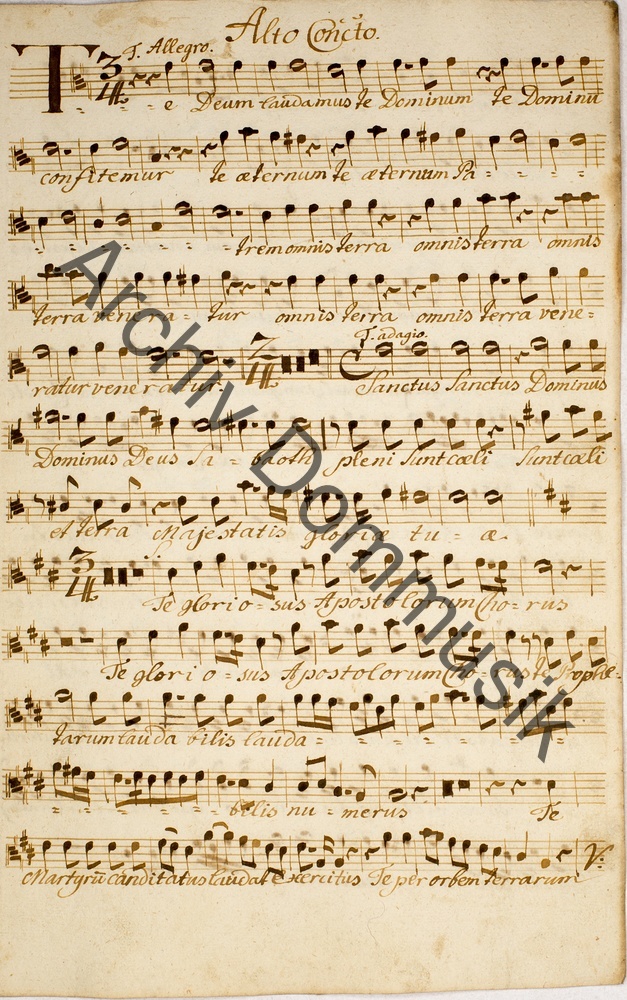 Alto Concto.
T. Allegro.
Te Deum laudamus te Dominum te Dominū
confitemur te æternum te æternum Pa - - - -
- - - - - - trem omnis terra omnis terra omnis
terra venera - tur omnis terra omnis terra vene =
T. adagio.
ratur veneratur. Sanctus Sanctus Dominus
Dominus Deus Sa - baoth pleni sunt cœli sunt cœli
et terra Majestatis gloriæ tu - æ
Te glorio - sus Apostolorum Cho - rus
Te glorio - sus Apostolorum Cho - rus te Prophe -
tarum lauda bilis lauda = = = = = = =
- - - - - - bilis nu - merus Te
Martyrū canditatus laudat Exercitus Te per orbem terrarum V:
Archiv Dommusik